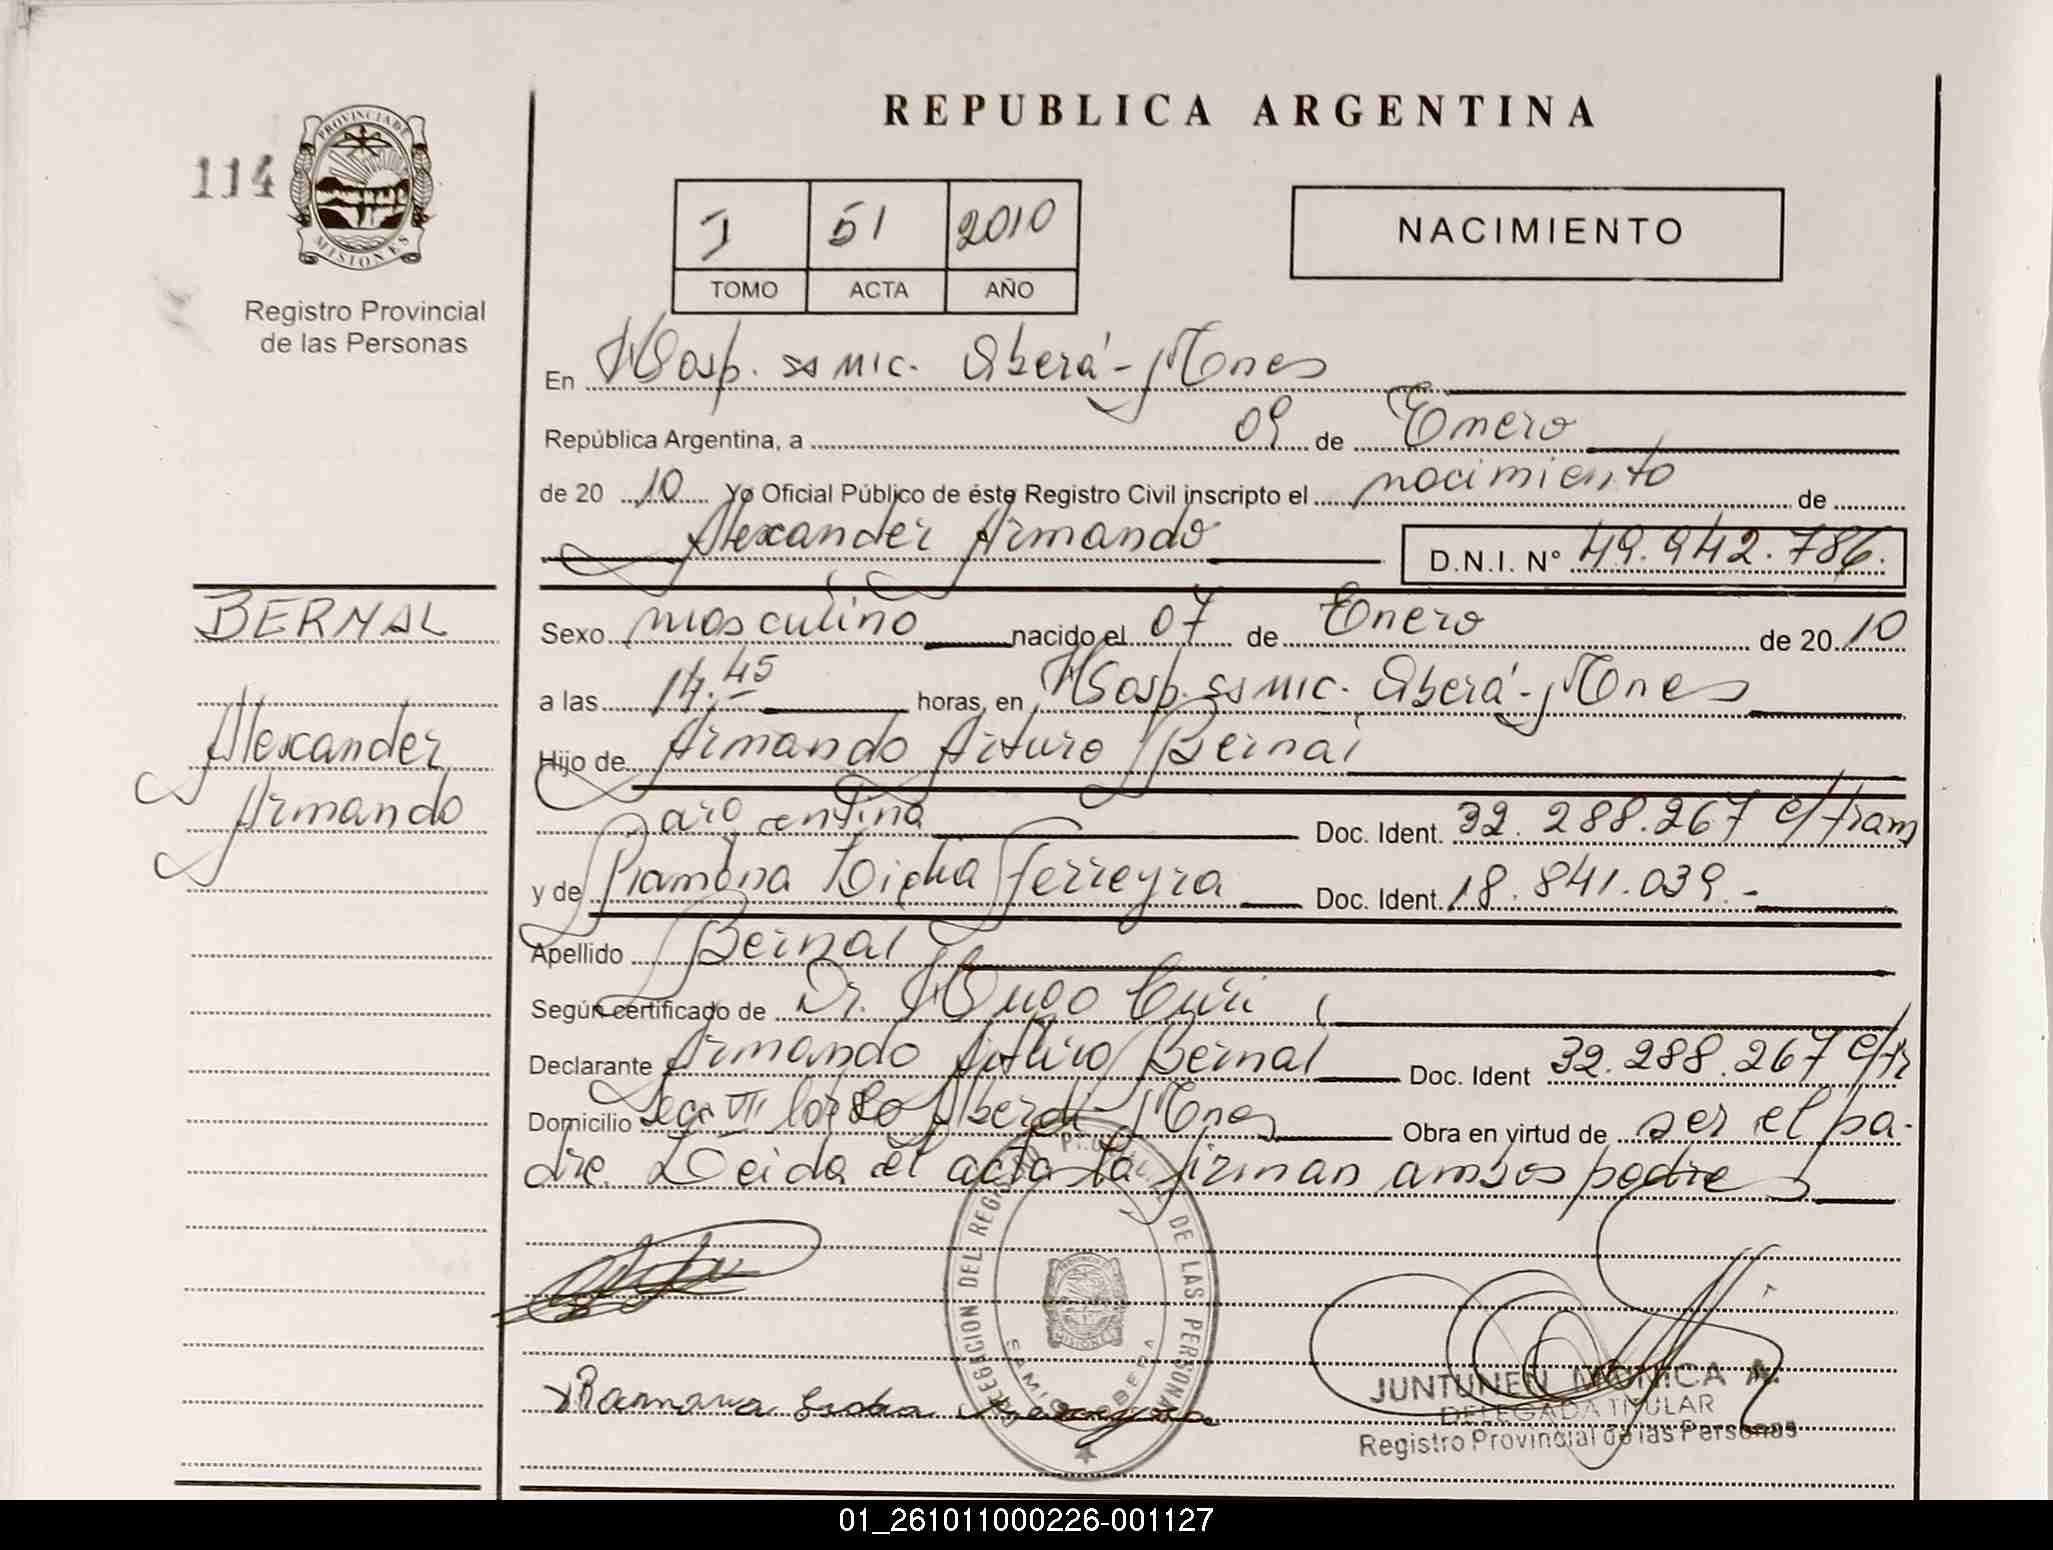 REPUBLICA ARGENTINA
114
PROVINCIA DE MISIONES
Registro Provincial
de las Personas
I 51 2010
TOMO ACTA AÑO
NACIMIENTO
En Hosp. ss mic. Oberá - Mnes
República Argentina, a 09 de Enero
de 20 10 Yo Oficial Público de éste Registro Civil inscripto el nacimiento de
Alexander Armando D.N.I. Nº 49.942.786.
BERNAL
Alexander
Armando
Sexo masculino nacido el 07 de Enero de 20 10
a las 14.45 horas, en Hosp. ss mic. Oberá - Mnes
Hijo de Armando Arturo Bernal
argentina Doc. Ident. 32.288.267 c/tram
y de Ramona Lidia Ferreyra Doc. Ident. 18.841.039.-
Apellido Bernal
Según certificado de Dr. Hugo Curi
Declarante Armando Arturo Bernal Doc. Ident 32.288.267 c/tr
Domicilio Secc VIII lote 80 Alberdi - Mnes Obra en virtud de ser el pa-
dre. Leida el acta la firman ambos padres
DELEGACION DEL REGISTRO PROVINCIAL DE LAS PERSONAS
Ramona Lidia Ferreyra
JUNTUNEN MONICA A.
DELEGADA TITULAR
Registro Provincial de las Personas
01_261011000226-001127